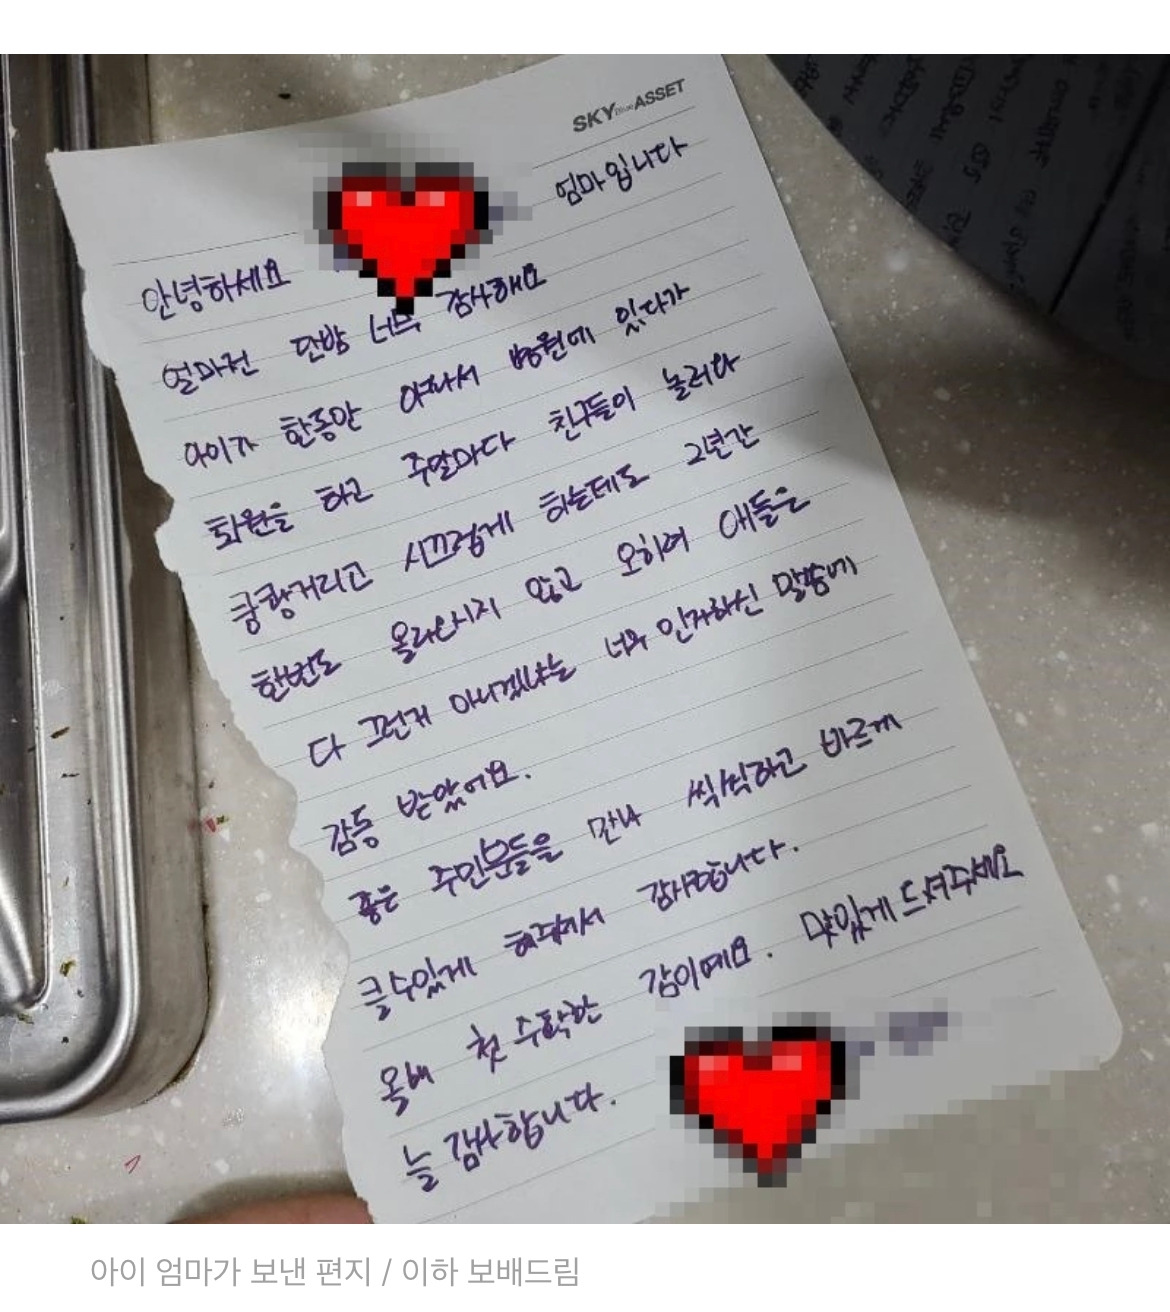 SKY ASSET
안녕하세요 엄마입니다
얼마전 단밤 너무 감사해요
아이가 한동안 아파서 병원에 있다가
퇴원을 하고 주말마다 친구들이 놀러와
쿵쾅거리고 시끄럽게 하는데도 2년간
한번도 올라오시지 않고 오히려 애들은
다 그런거 아니겠냐는 너무 인자하신 말씀에
감동 받았어요.
좋은 주민분들을 만나 씩씩하고 바르게
클수있게 해주셔서 감사합니다.
올해 첫 수확한 감이예요. 맛있게 드셔주세요
늘 감사합니다.
아이 엄마가 보낸 편지 / 이하 보배드림